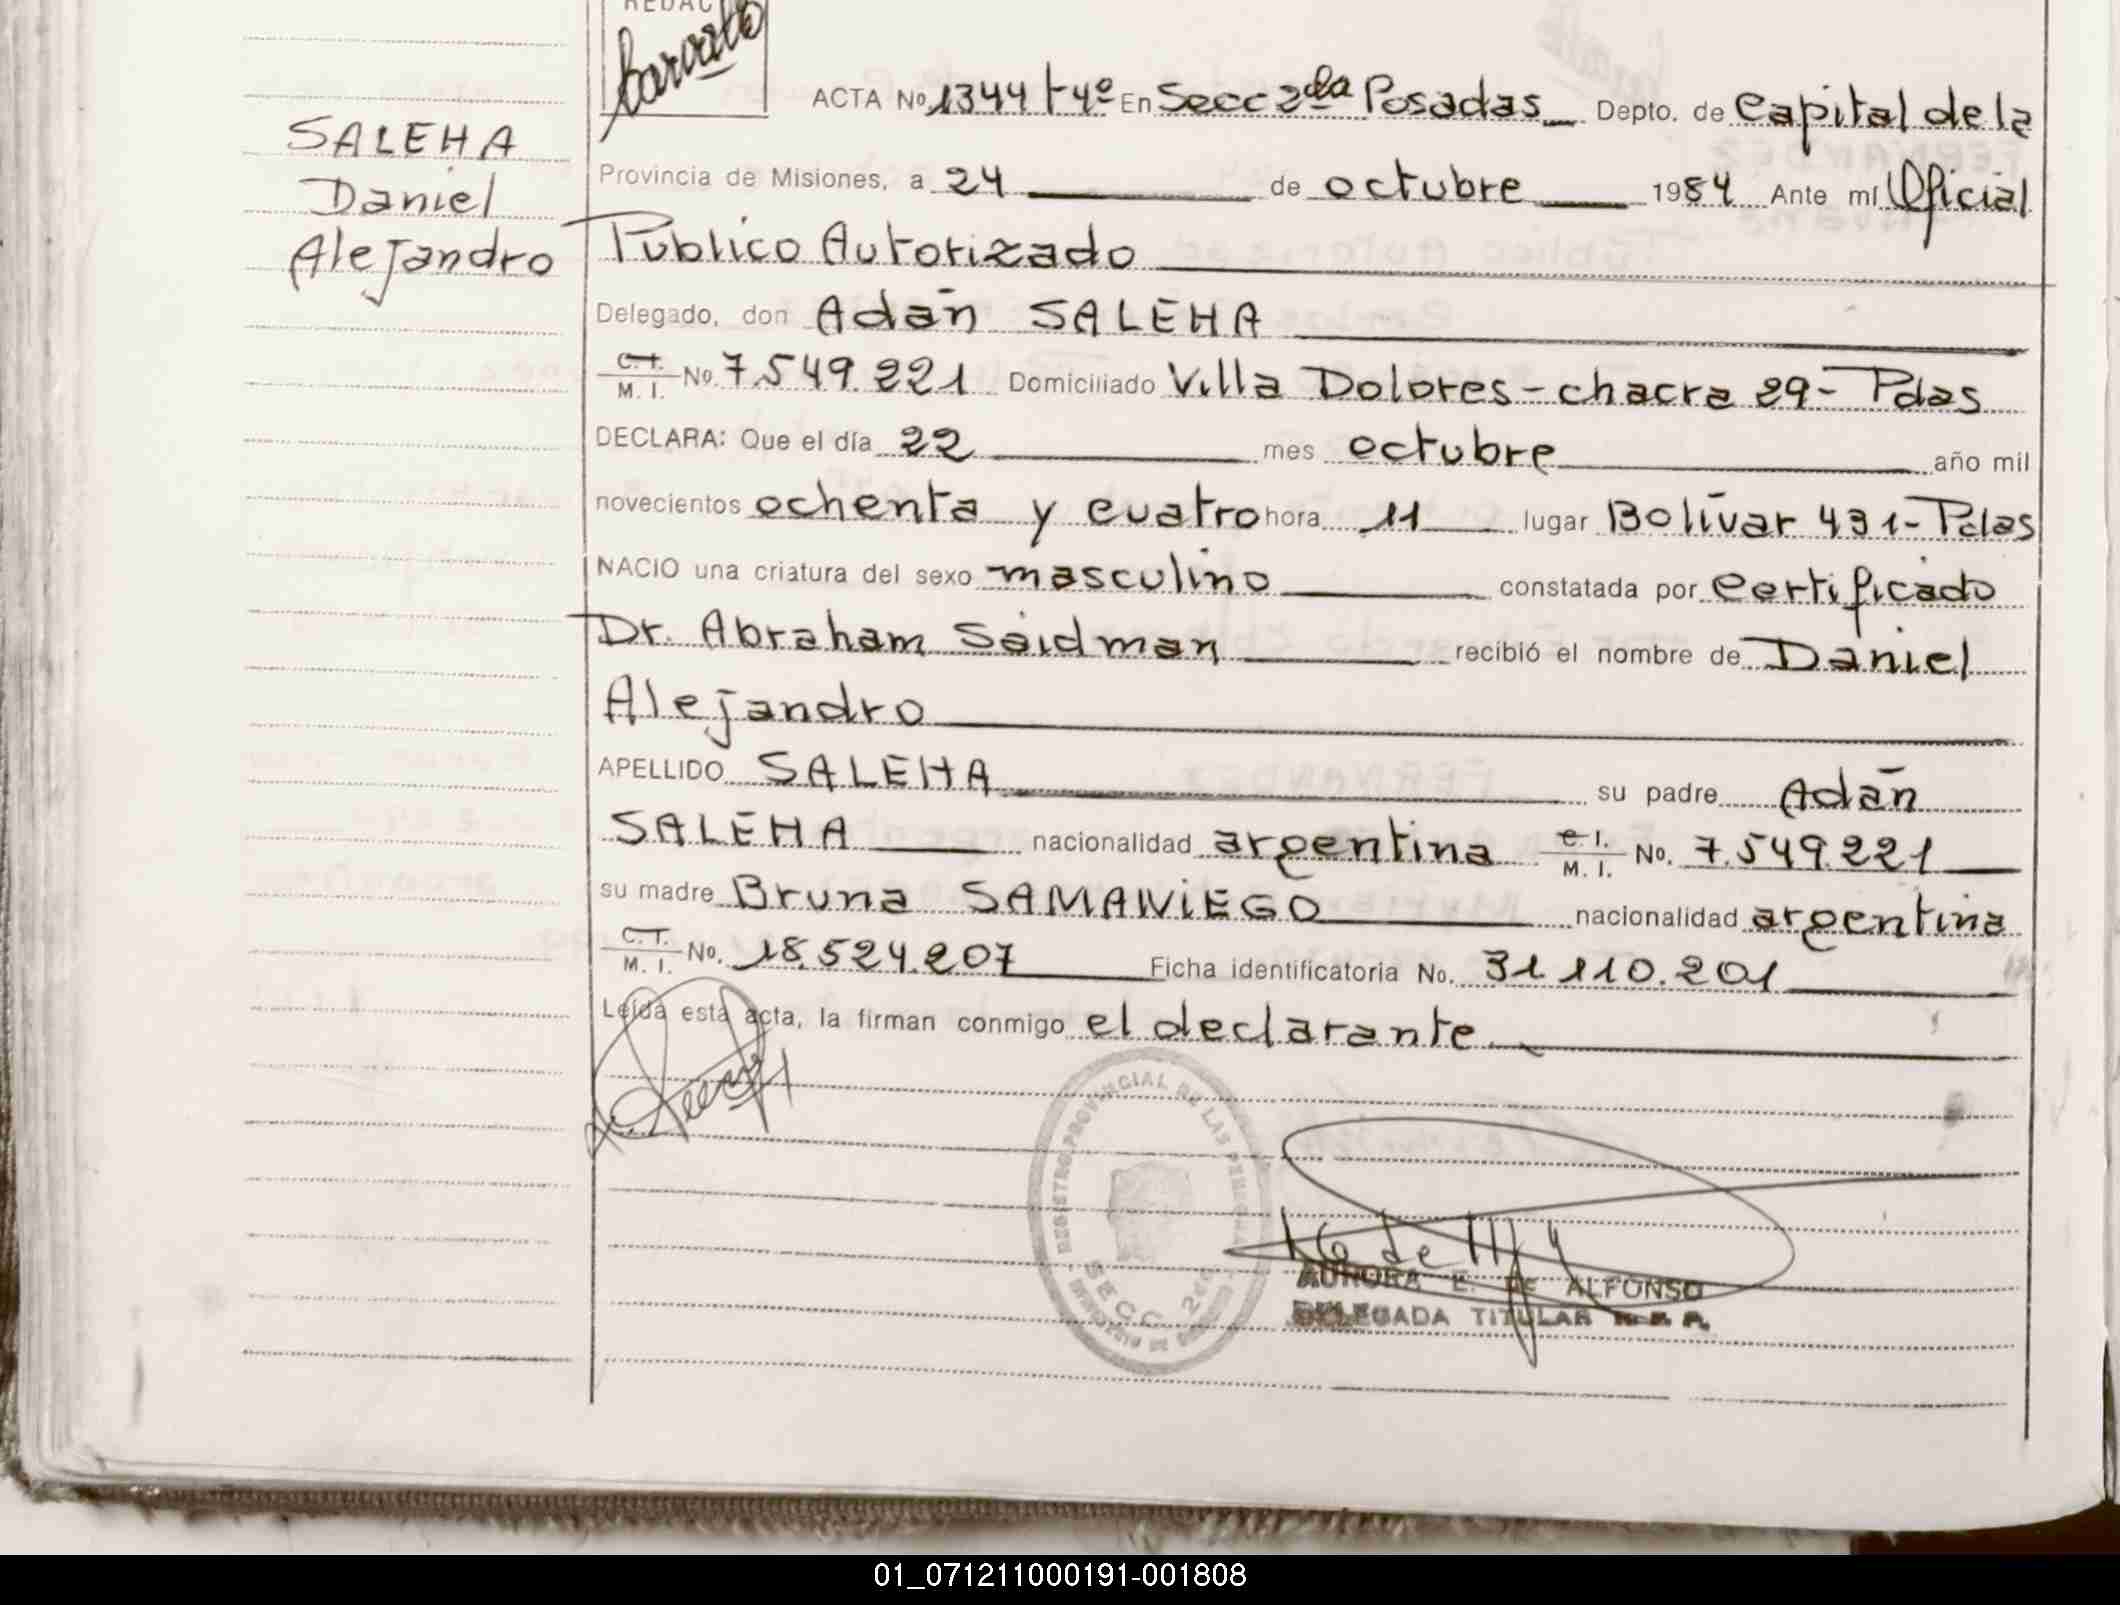 REDAC
ACTA No 1344 t-4º En Secc 2da Posadas Depto. de Capital de la
SALEHA
Daniel
Alejandro
Provincia de Misiones, a 24 de octubre 1984 Ante mí Oficial
Público Autorizado
Delegado, don Adán SALEHA
C.I. M. I. No. 7.549.221 Domiciliado Villa Dolores - chacra 29 - Pdas
DECLARA: Que el día 22 mes octubre año mil
novecientos ochenta y cuatro hora 11 lugar Bolívar 431 - Pdas
NACIO una criatura del sexo masculino constatada por certificado
Dr. Abraham Saidman recibió el nombre de Daniel
Alejandro
APELLIDO SALEHA su padre Adán
SALEHA nacionalidad argentina C. I. M. I. No. 7.549.221
su madre Bruna SAMANIEGO nacionalidad argentina
C. I. M. I. No. 18.524.207 Ficha identificatoria No. 31.110.201
Leída esta acta, la firman conmigo el declarante
REGISTRO PROVINCIAL DE LAS PERSONAS
SECC. 2da
AURORA E. DE ALFONSO
DELEGADA TITULAR R.P.P.
01_071211000191-001808